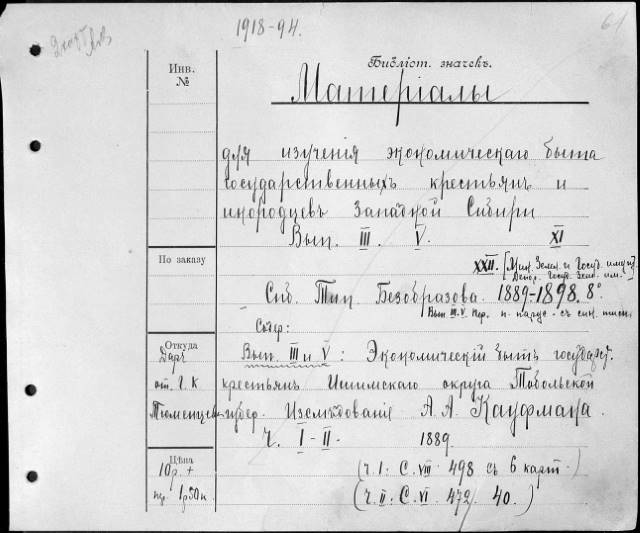 1918-94.
61
Инв.
№
Библіот. значекъ.
Матеріалы
для изученія экономическаго быта
государственныхъ крестьянъ и
инородцевъ Западной Сибири
Вып. III. V. XI
По заказу
XXII. [Мин. Земл. и Госуд. имущ.
Депар. Госуд. Зем. им.]
Спб. Тип. Безобразова. 1889-1898. 8°.
Вып III. V пер. п. парус. съ син. тисн.
Содер:
Откуда
Даръ
от. Г. К
Тюменцев
Вып. III и V: Экономическій бытъ государст.
крестьянъ Ишимскаго округа Тобольской
губер. Изслѣдованіе А. А. Кауфмана.
Ч. I-II. 1889.
Цѣна
10 р. +
пер. 1р50к.
(ч. I. С. VIII + 498 съ 6 карт.)
(ч. II. С. VI + 472. 40.)